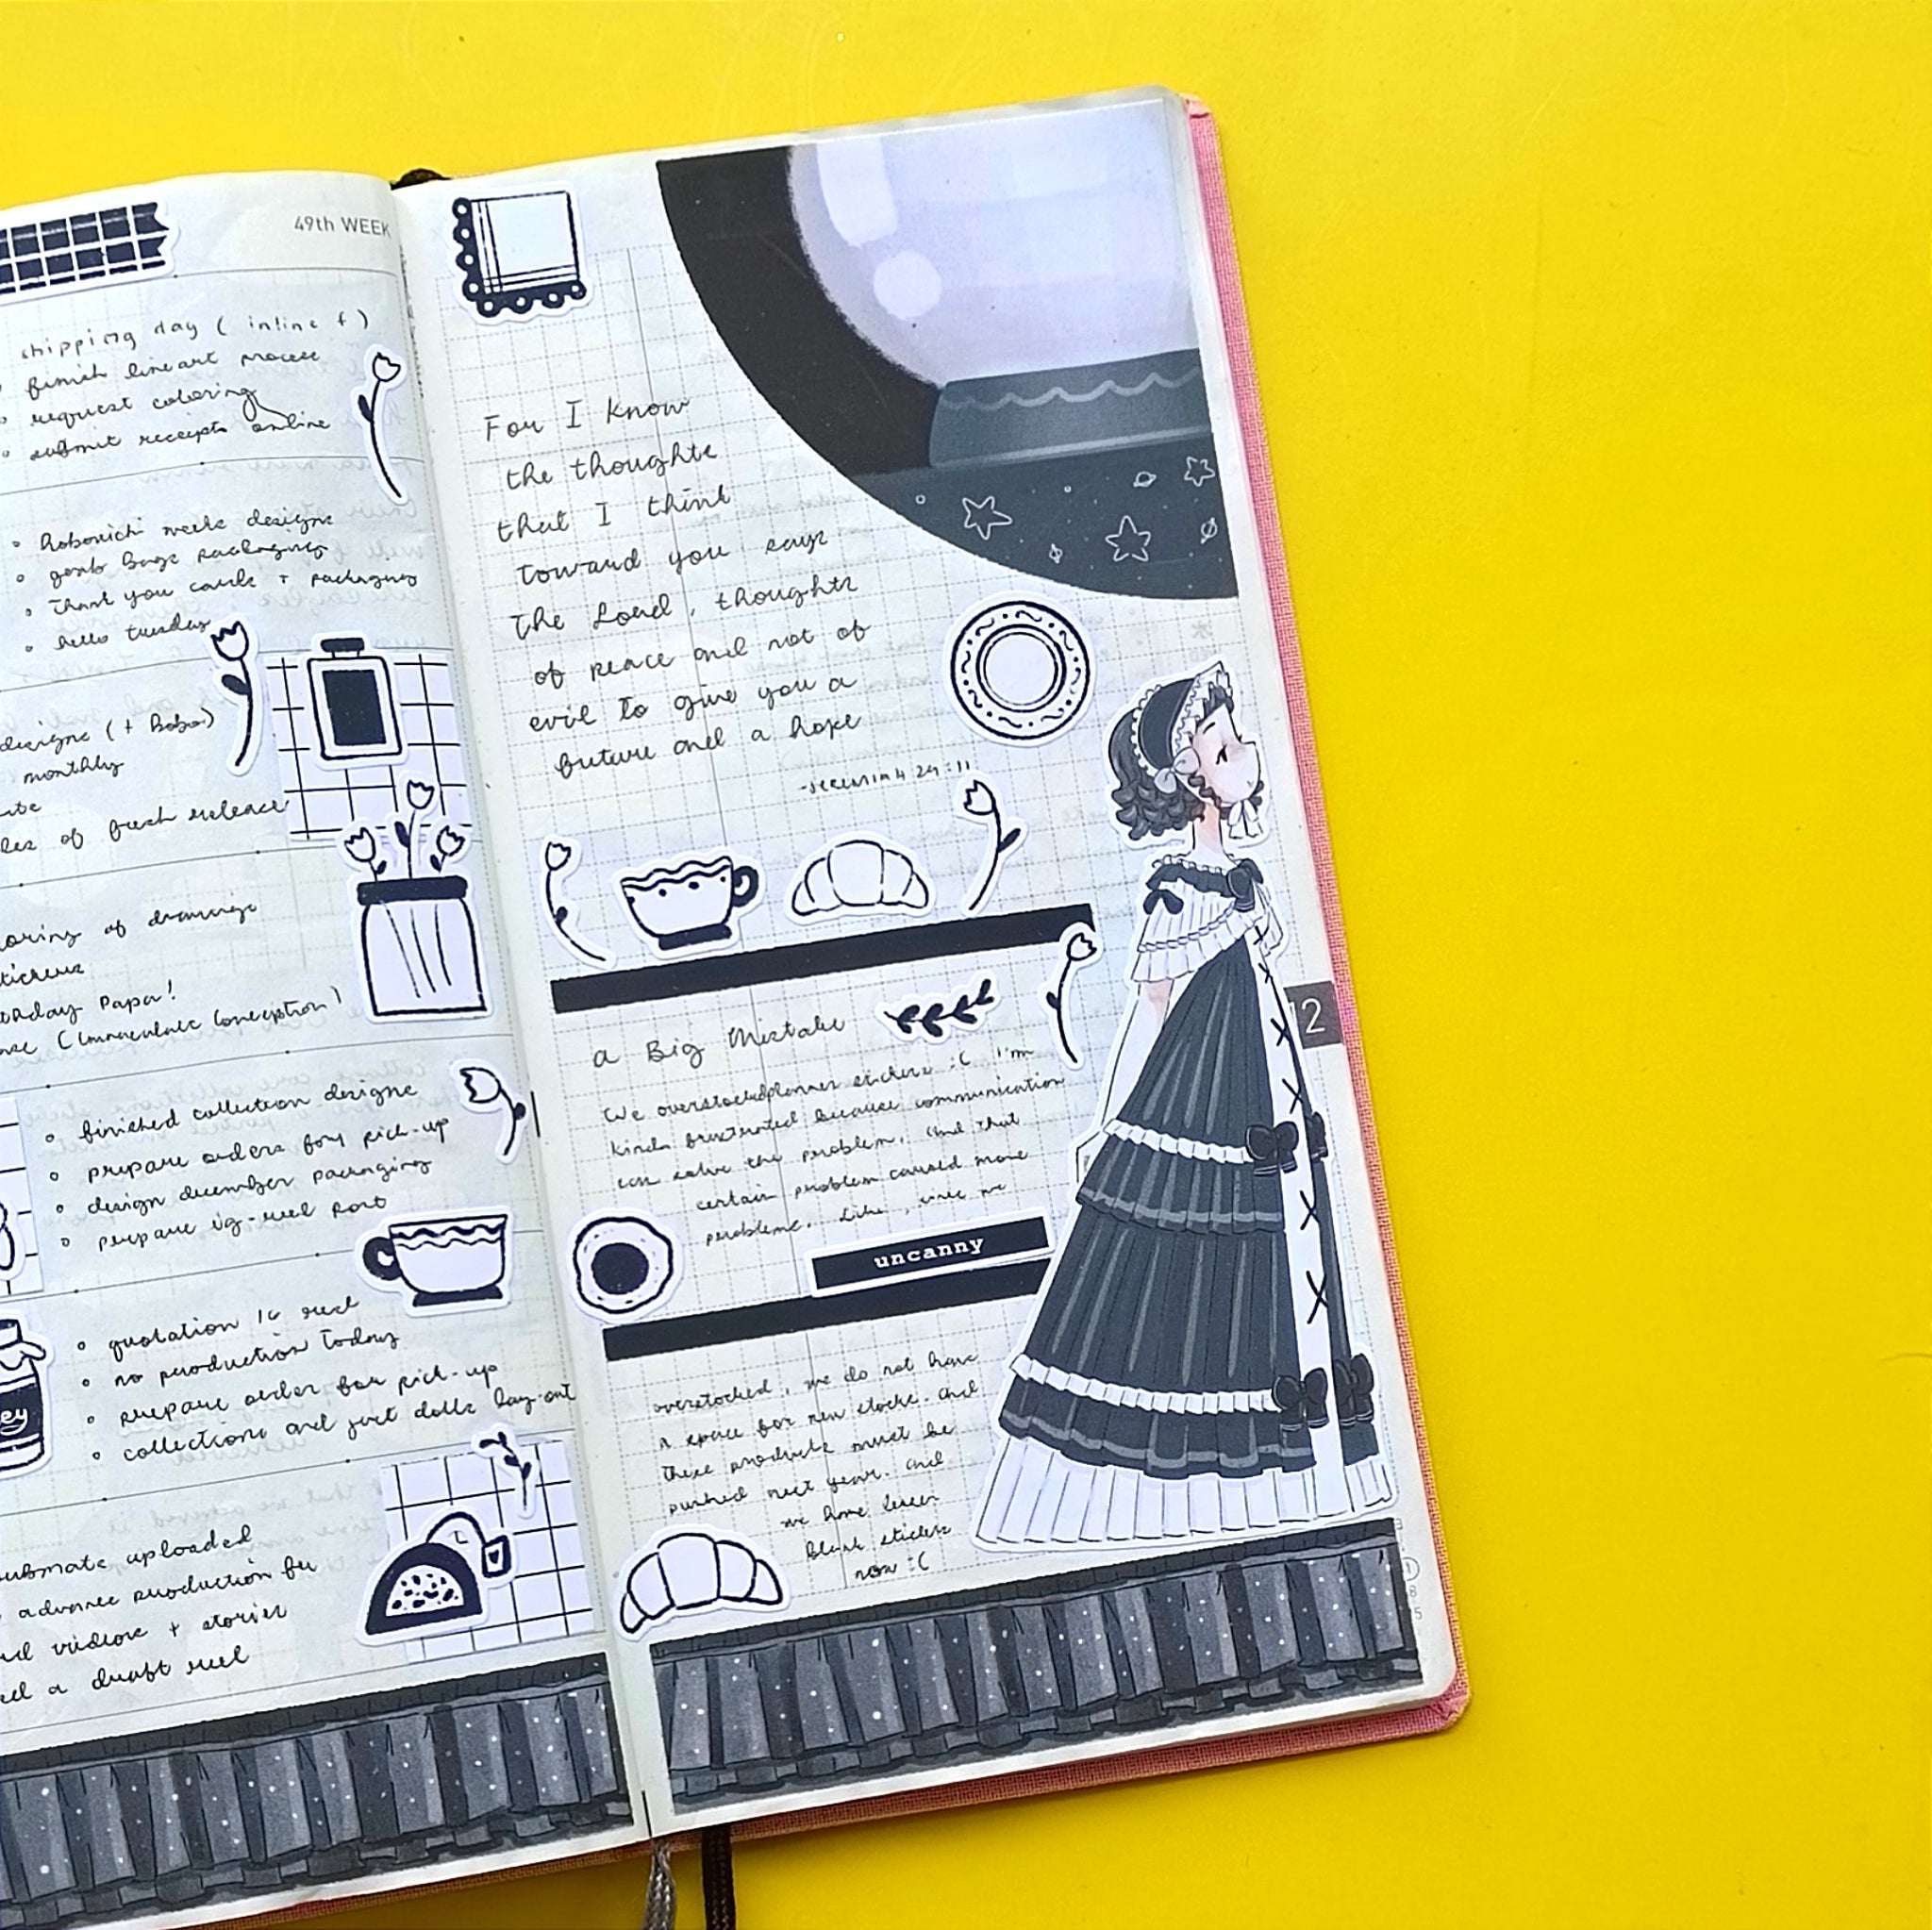 49th WEEK
shipping day ( inline f )
finish lineart process
request coloring
submit receipts online
Hobonichi weeks designs
Bags packaging
Thank you cards + packaging
hello tuesday
designs ( + Bobo )
monthly
of fresh release
of drawings
Papa!
( Immaculate Conception )
finished collection designs
prepare orders for pick-up
design december packaging
prepare ig-reel post
quotation 16 reel
no production today
prepare order for pick-up
collections and just dolls lay-out
uploaded
advance production for
videos + stories
a draft reel
For I know
the thoughts
that I think
toward you says
The Lord, thoughts
of peace and not of
evil to give you a
future and a hope
- Jeremiah 29:11
a Big Mistake
We overstocked planner stickers :( I'm
kinda frustrated because communication
can solve the problem. And that
certain problem caused more
problems. Like, since we
uncanny
overstocked, we do not have
a space for new stocks. And
these products must be
pushed next year. And
we have lesser
Blank stickers
now :(
12